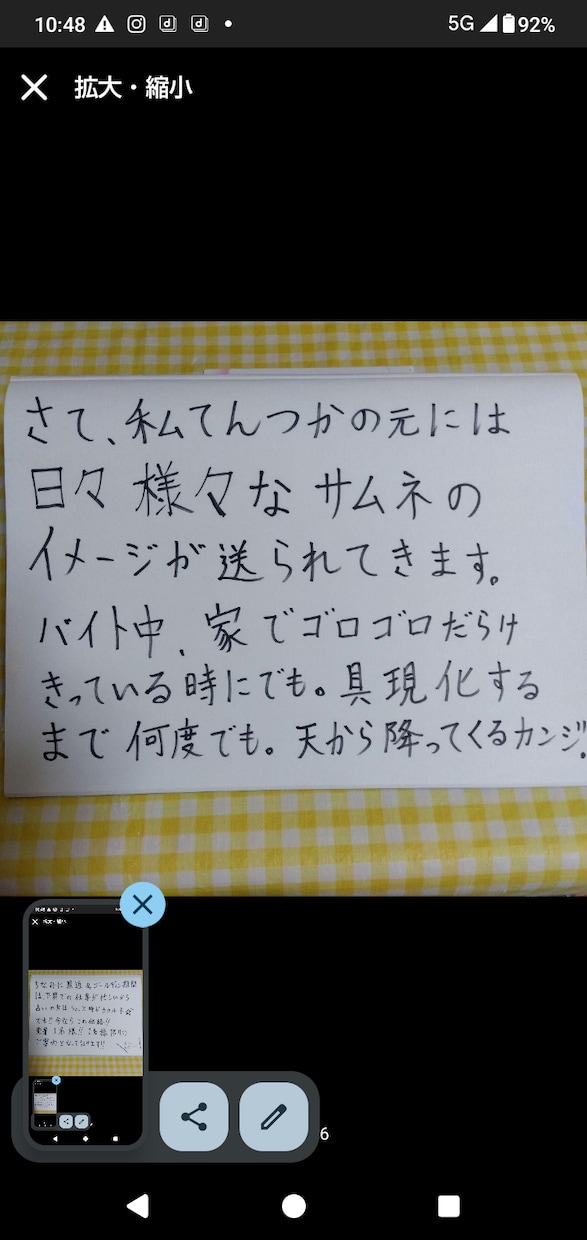 10:48
5G
92%
拡大・縮小
さて、私てんつかの元には
日々様々なサムネの
イメージが送られてきます。
バイト中、家でゴロゴロだらけ
きっている時にでも。具現化する
まで何度でも。天から降ってくるカンジ!
6